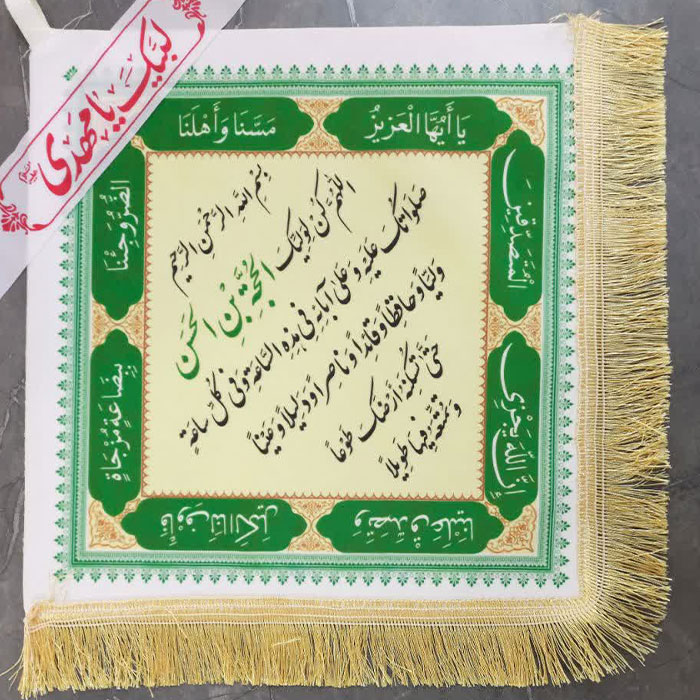 لبیک یا مهدی
یَا أَیُّهَا الْعَزِیزُ
مَسَّنَا وَ أَهْلَنَا
الضُّرُّ وَجِئْنَا
بِبِضَاعَةٍ مُزْجَاةٍ
فَأَوْفِ لَنَا الْکَیْلَ
وَتَصَدَّقْ عَلَیْنَا
إِنَّ اللّٰهَ یَجْزِی
الْمُتَصَدِّقِینَ
بِسْمِ اللّٰهِ الرَّحْمٰنِ الرَّحِیمِ
اَللّٰهُمَّ کُنْ لِوَلِیِّکَ الْحُجَّةِ بْنِ الْحَسَنِ
صَلَوَاتُکَ عَلَیْهِ وَ عَلیٰ آبَائِهِ فِی هٰذِهِ السَّاعَةِ وَ فِی کُلِّ سَاعَةٍ
وَلِیًّا وَ حَافِظًا وَ قَائِدًا وَ نَاصِرًا وَ دَلِیلًا وَ عَیْنًا
حَتّیٰ تُسْکِنَهُ أَرْضَکَ طَوْعًا
وَ تُمَتِّعَهُ فِیهَا طَوِیلًا